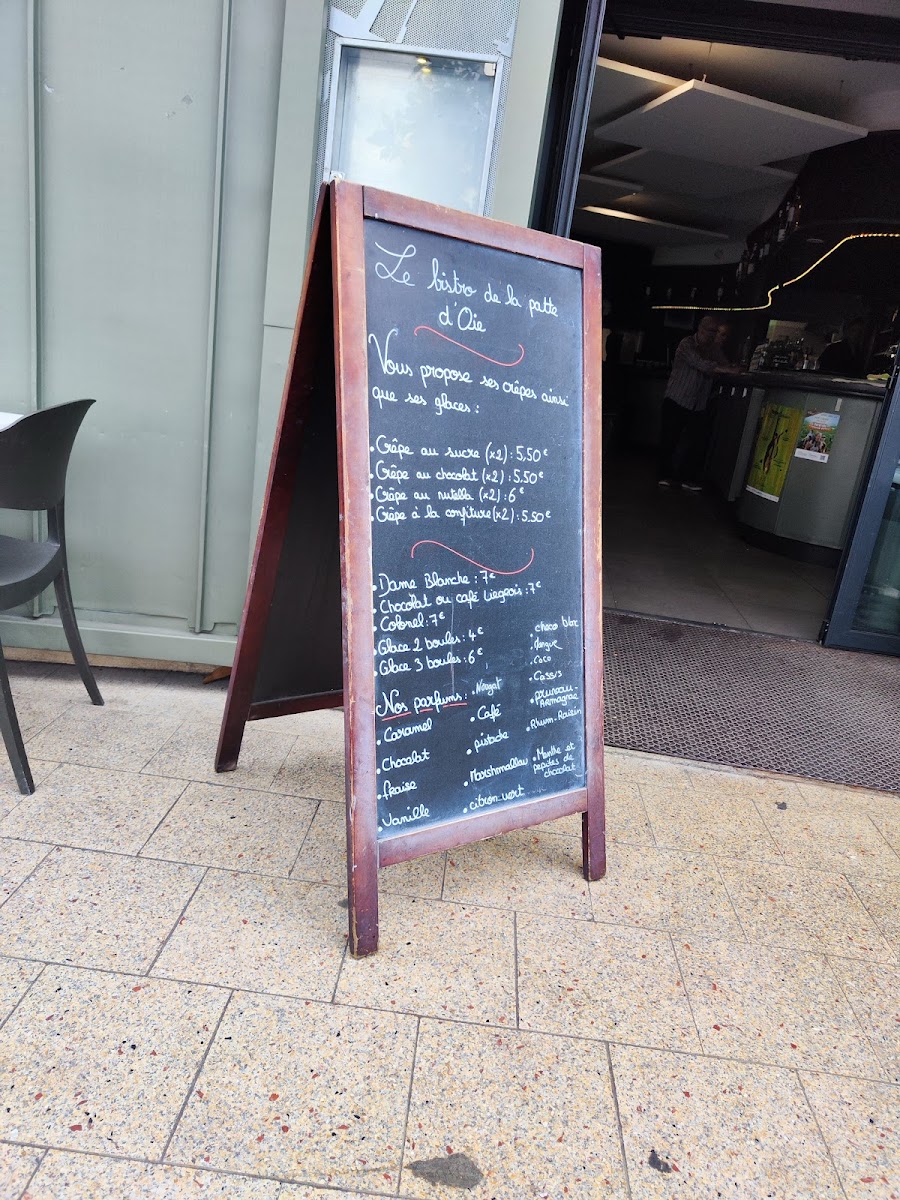 Le bistro de la patte
d'Oie
Vous propose ses crêpes ainsi
que ses glaces :
• Crêpe au sucre (x2) : 5,50 €
• Crêpe au chocolat (x2) : 5.50 €
• Crêpe au nutella (x2) : 6 €
• Crêpe à la confiture (x2) : 5.50 €
• Dame Blanche : 7 €
• Chocolat ou café Liegeois : 7 €
• Colonel : 7 €
• Glace 2 boules : 4 €
• Glace 3 boules : 6 €
Nos parfums :
• Caramel
• Chocolat
• fraise
• Vanille
• Nougat
• Café
• pistache
• Marshmallow
• citron-vert
• choco blc
• Mangue
• Coco
• Cassis
• pruneau-
Armagnac
• Rhum-Raisin
• Menthe et
pépites de
chocolat